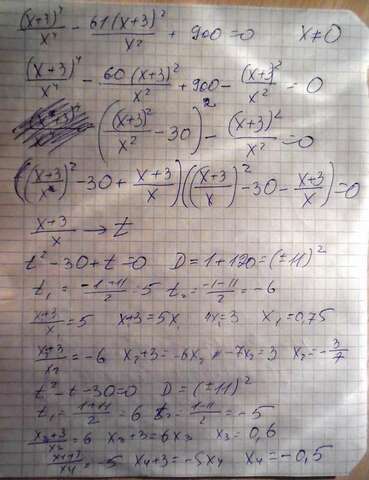 (x+3)^4/x^4 - 61(x+3)^2/x^2 + 900 = 0   x≠0
(x+3)^4/x^4 - 60(x+3)^2/x^2 + 900 - (x+3)^2/x^2 = 0
((x+3)^2/x^2 - 30)^2 - (x+3)^2/x^2 = 0
((x+3/x)^2 - 30 + x+3/x)((x+3/x)^2 - 30 - x+3/x) = 0
x+3/x → t
t^2 - 30 + t = 0   D = 1 + 120 = (±11)^2
t1 = -1+11/2 = 5   t2 = -1-11/2 = -6
x+3/x = 5   x+3 = 5x   4x = 3   x1 = 0,75
x2+3/x2 = -6   x2+3 = -6x2   -7x2 = 3   x2 = -3/7
t^2 - t - 30 = 0   D = (±11)^2
t1 = 1+11/2 = 6   t2 = 1-11/2 = -5
x3+3/x3 = 6   x3+3 = 6x3   x3 = 0,6
x4+3/x4 = -5   x4+3 = -5x4   x4 = -0,5